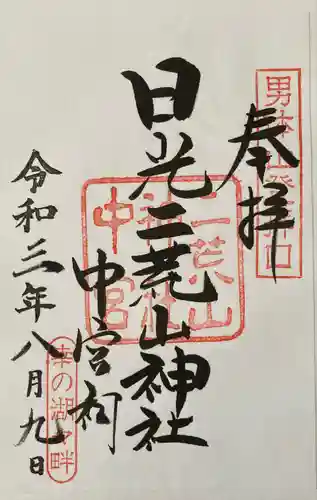 奉拝
男体山登拝口
日光二荒山神社
中宮祠
二荒山
神社
中宮
令和三年八月九日
幸の湖々畔